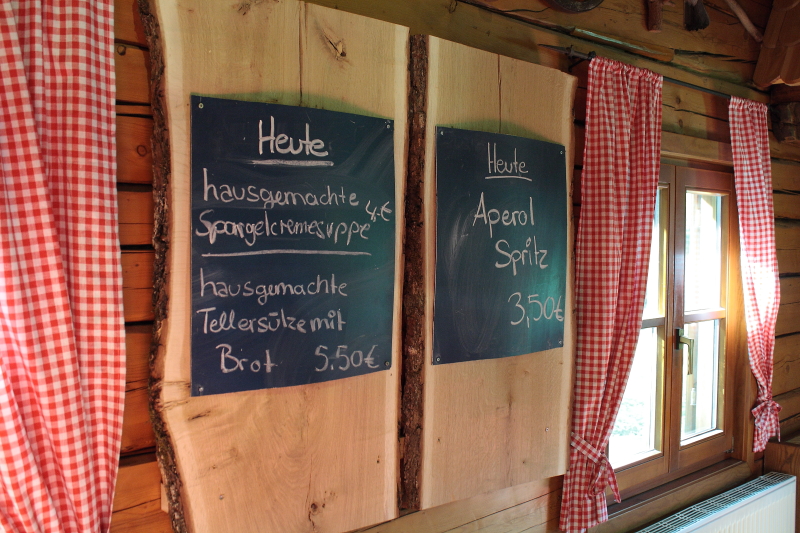 Heute
hausgemachte
Spargelcremesuppe 4.€
hausgemachte
Tellersülze mit
Brot 5.50€
Heute
Aperol
Spritz
3,50€